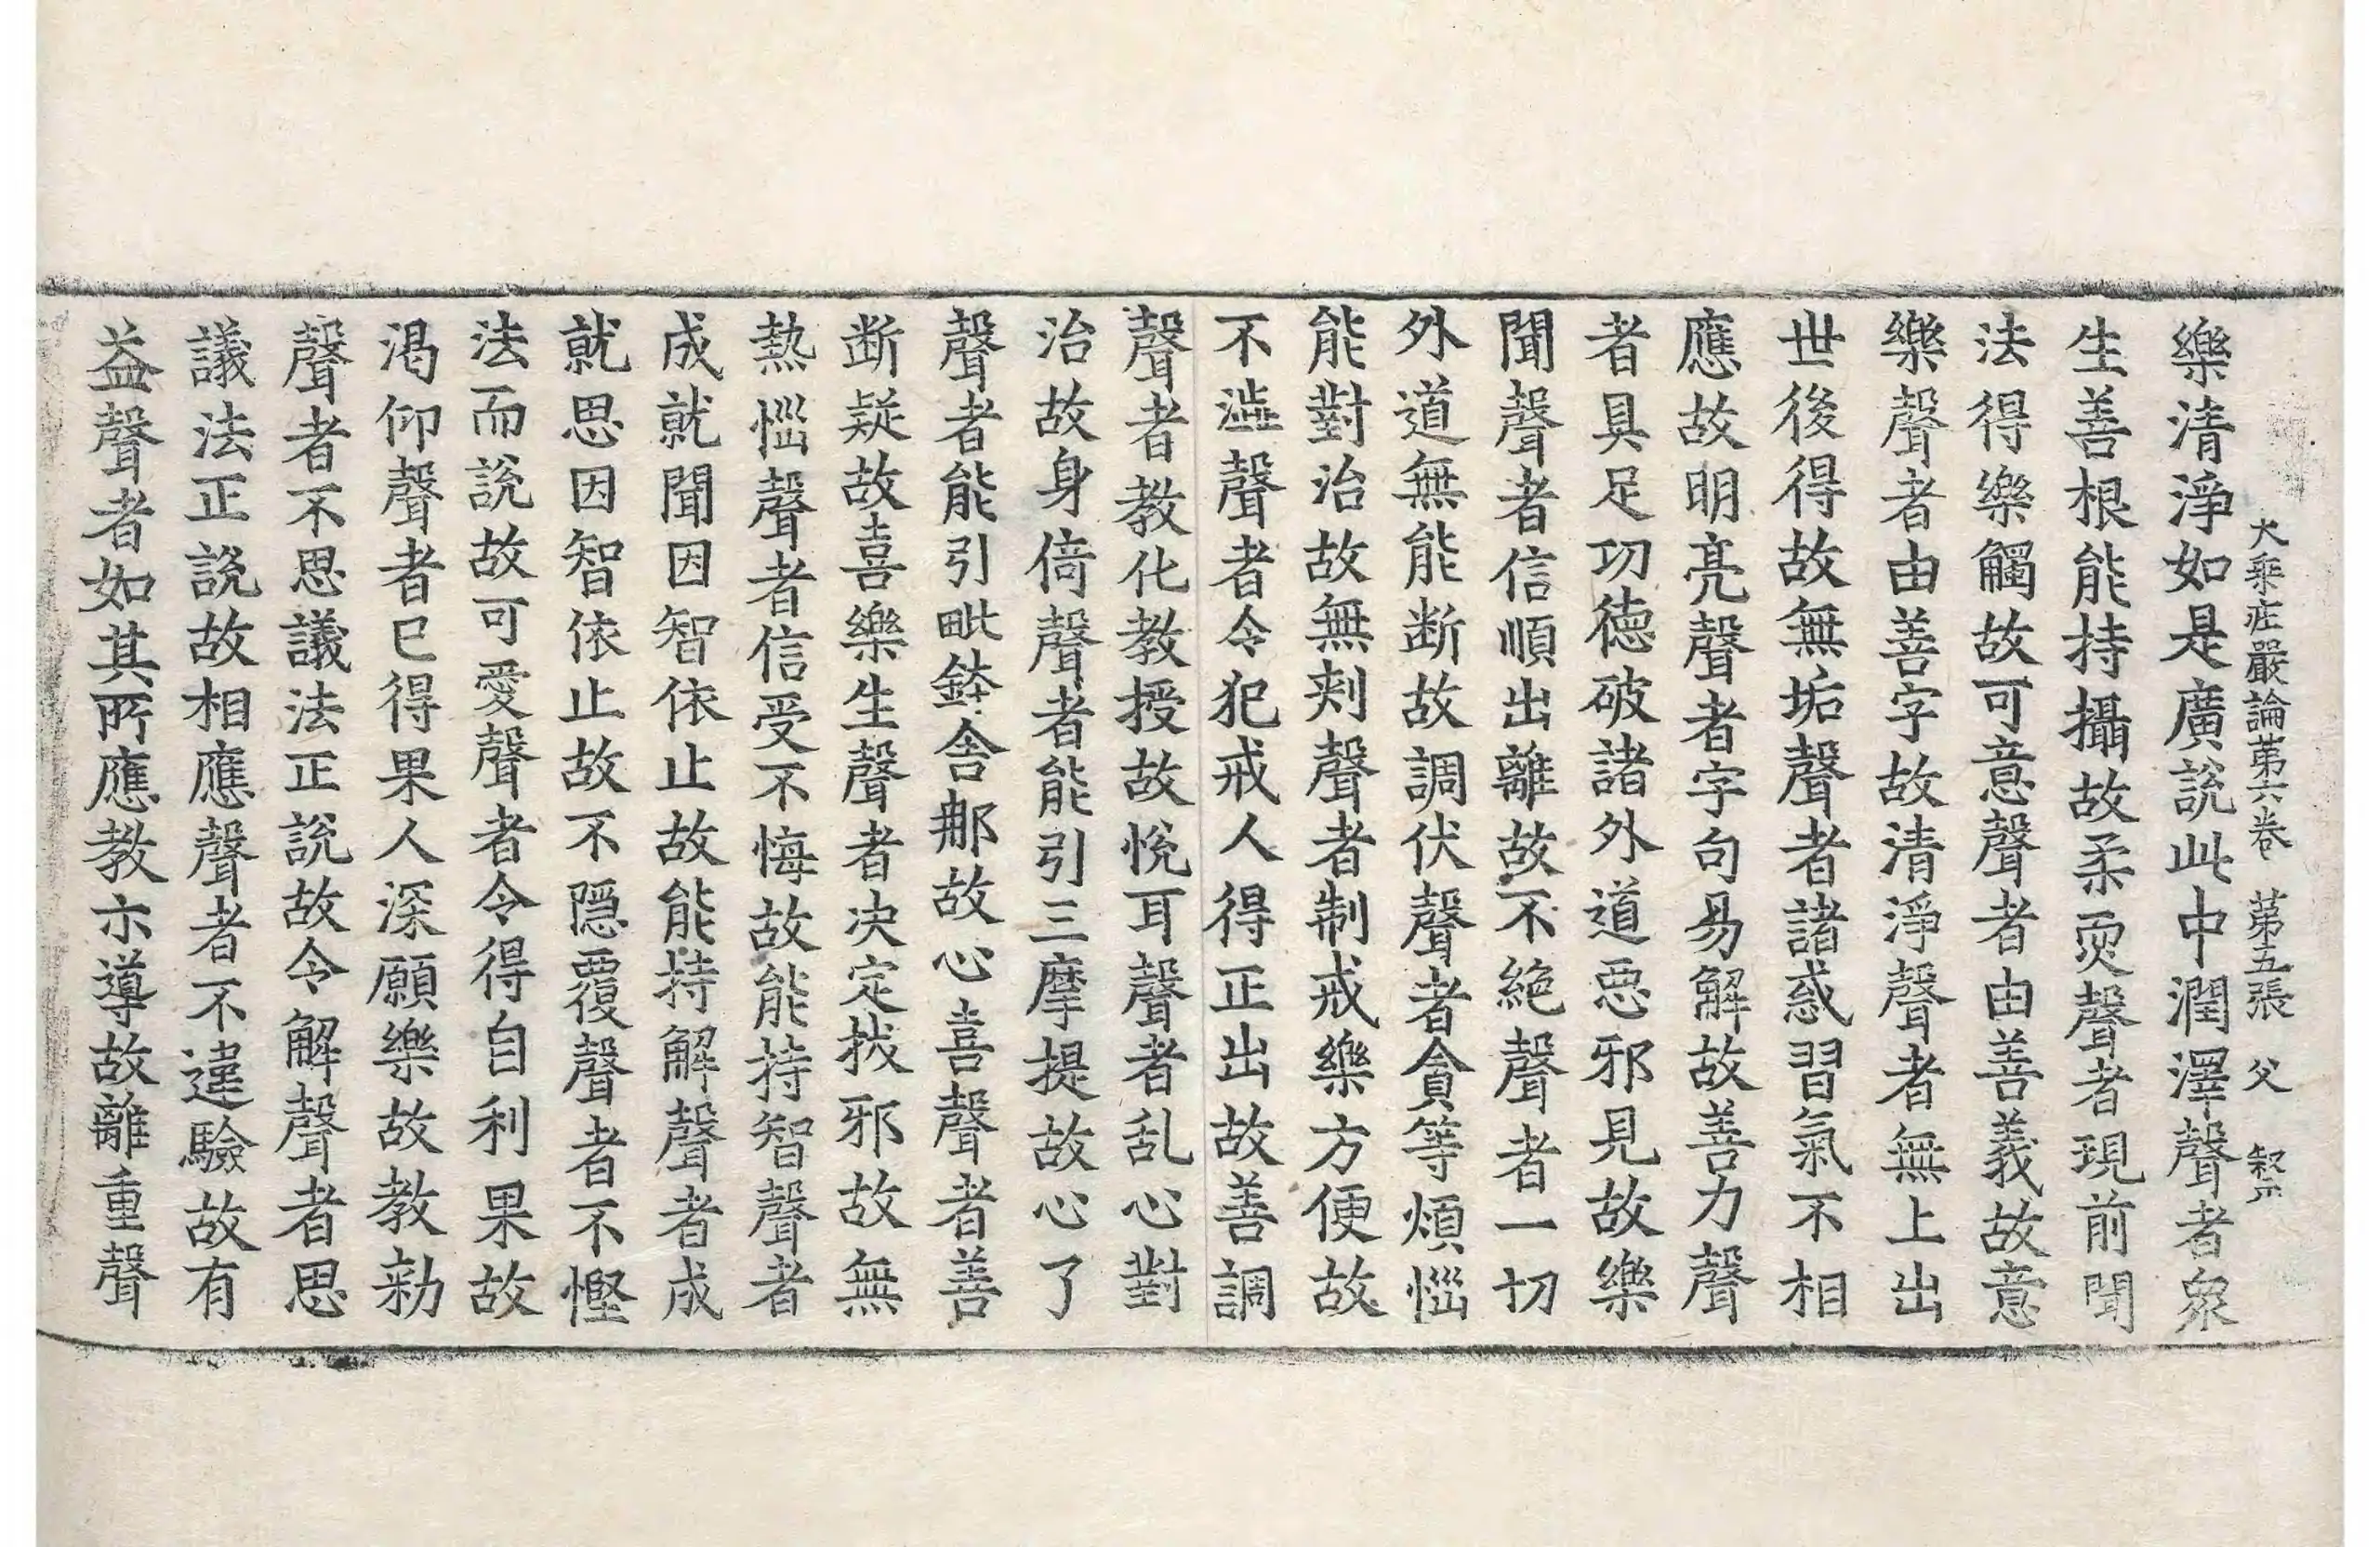 大乘庄嚴論第六卷 第五張 父
樂清淨如是廣說此中潤澤聲者衆
生善根能持攝故柔耎聲者現前聞
法得樂觸故可意聲者由善義故意
樂聲者由善字故清淨聲者無上出
世後得故無垢聲者諸惑習氣不相
應故明亮聲者字句易解故善力聲
者具足功德破諸外道惡邪見故樂
聞聲者信順出離故不絕聲者一切
外道無能断故調伏聲者貪等煩惱
能對治故無刾聲者制戒樂方便故
不澁聲者令犯戒人得正出故善調
聲者教化教授故悅耳聲者乱心對
治故身倚聲者能引三摩提故心了
聲者能引毗鉢舍那故心喜聲者善
断疑故喜樂生聲者决定拔邪故無
熱惱聲者信受不悔故能持智聲者
成就聞因智依止故能持解聲者成
就思因智依止故不隱覆聲者不慳
法而說故可愛聲者令得自利果故
渴仰聲者已得果人深願樂故教勑
聲者不思議法正說故令解聲者思
議法正說故相應聲者不違驗故有
益聲者如其所應教亦導故離重聲